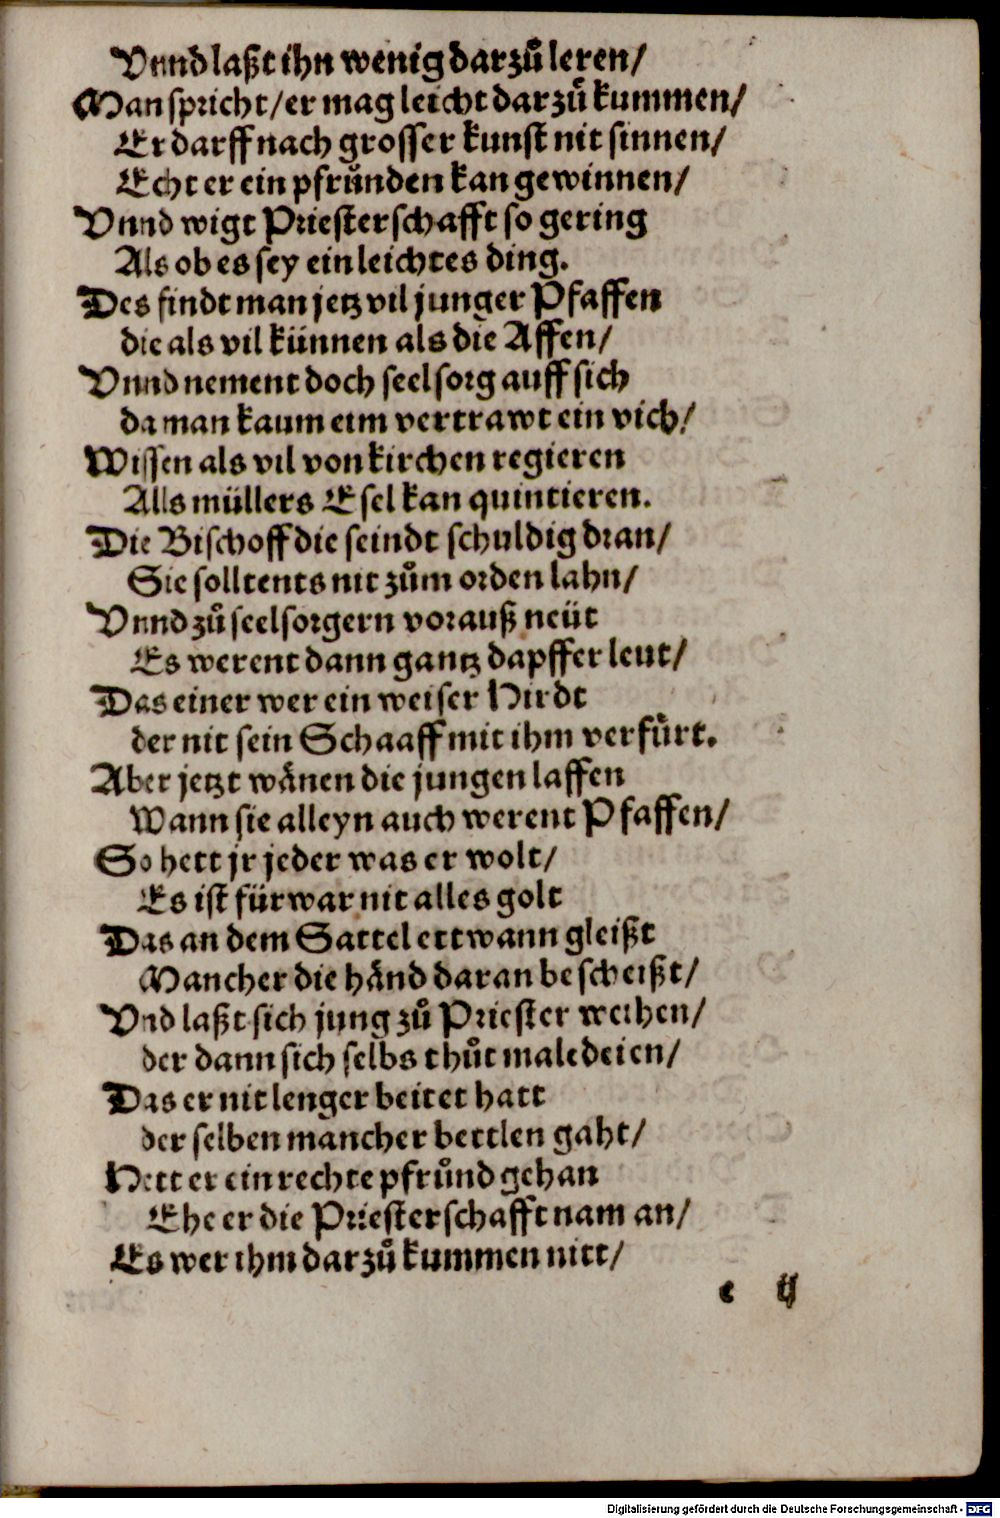 Vnnd laßt ihn wenig darzů leren/
Man spricht/er mag leicht darzů kummen/
Er darff nach grosser kunst nit sinnen/
Echt er ein pfrůnden kan gewinnen/
Vnnd wigt Priesterschafft so gering
Als ob es sey ein leichtes ding.
Des findt man jetz vil junger Pfaffen
die als vil künnen als die Affen/
Vnnd nement doch seelsorg auff sich
da man kaum eim vertrawt ein vich/
Wissen als vil von kirchen regieren
Alls müllers Esel kan quintieren.
Die Bischoff die seindt schuldig dran/
Sie solltents nit zům orden lahn/
Vnnd zů seelsorgern vorauß neüt
Es werent dann gantz dapffer leut/
Das einer wer ein weiser Hirdt
der nit sein Schaaff mit ihm verfůrt.
Aber jetzt wånen die jungen laffen
Wann sie alleyn auch werent Pfaffen/
So hett jr jeder was er wolt/
Es ist fürwar nit alles golt
Das an dem Sattel ettwann gleißt
Mancher die hånd daran bescheißt/
Vnd laßt sich jung zů Priester weihen/
der dann sich selbs thůt maledeien/
Das er nit lenger beitet hatt
der selben mancher bettlen gaht/
Hett er ein rechte pfrůnd gehan
Ehe er die Priesterschafft nam an/
Es wer ihm darzů kummen nitt/
e ij
Digitalisierung gefördert durch die Deutsche Forschungsgemeinschaft - DFG